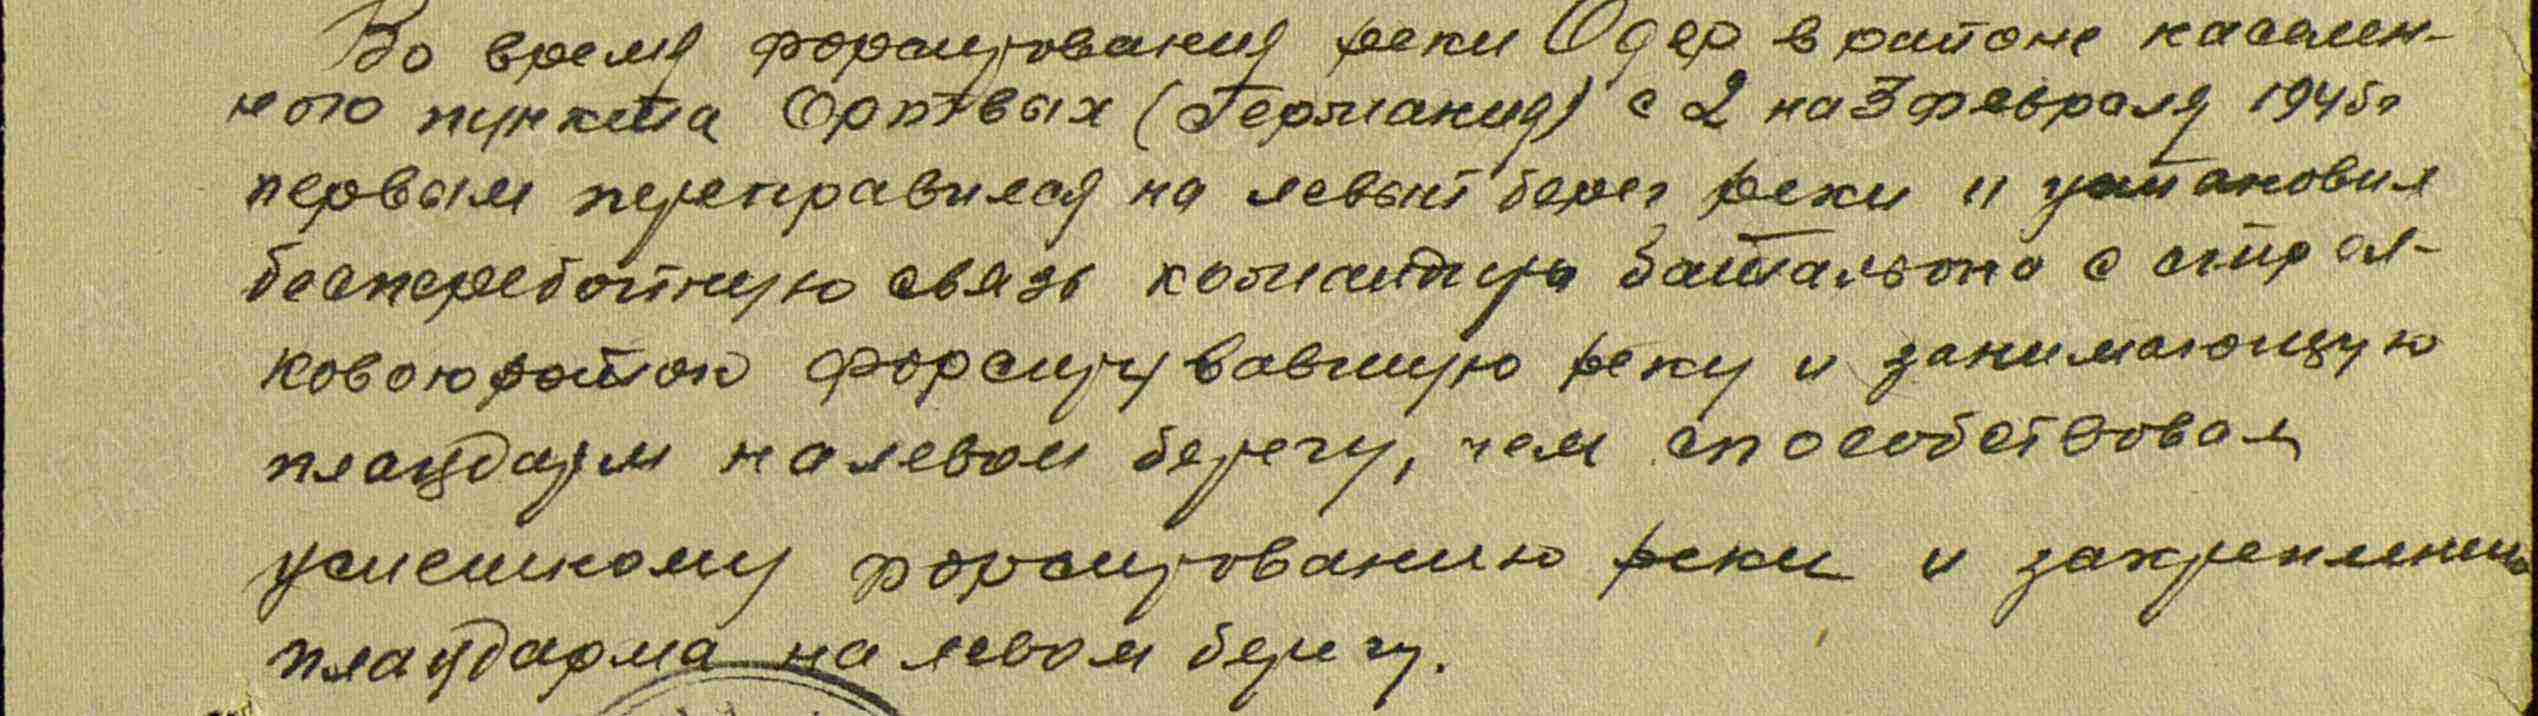 Во время форсирования реки Одер в районе населен-
ного пункта Ортвых (Германия) с 2 на 3 февраля 1945г
первым переправился на левый берег реки и установил
бесперебойную связь командира баталиона с стрел-
ковою ротою форсирувавшую реку и занимающую
плацдарм на левом берегу, чем способствовал
успешному форсированию реки и закреплению
плацдарма на левом берегу.